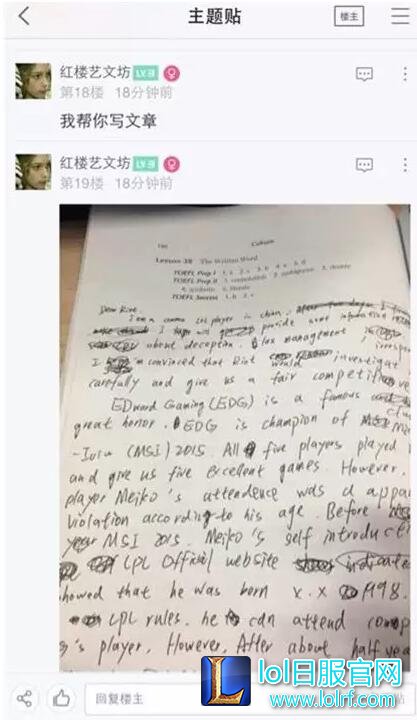 主题贴
楼主
红楼艺文坊 LV.9
第18楼 18分钟前
我帮你写文章
红楼艺文坊 LV.9
第19楼 18分钟前
Culture
Lesson 38 The Written Word
TOEFL Prep I
TOEFL Prep II
TOEFL Success
Dear Riot,
I am a LOL player in China.
I provide some information
about deception, lax management
I'm convinced that Riot would investigat
carefully and give us a fair competitive
EDward Gaming (EDG) is a famous
great honor. EDG is champion of
(MSI) 2015. All five players played
and give us five excellent games. However,
player Meiko's attendence was a appa
violation according to his age. Before
year MSI 2015. Meiko's self introducti
LPL Official website indicate
showed that he was born x.x 1998.
LPL rules, he can attend comp
's player. However, After about half yea
回复楼主
lol日服官网
www.lolrf.com